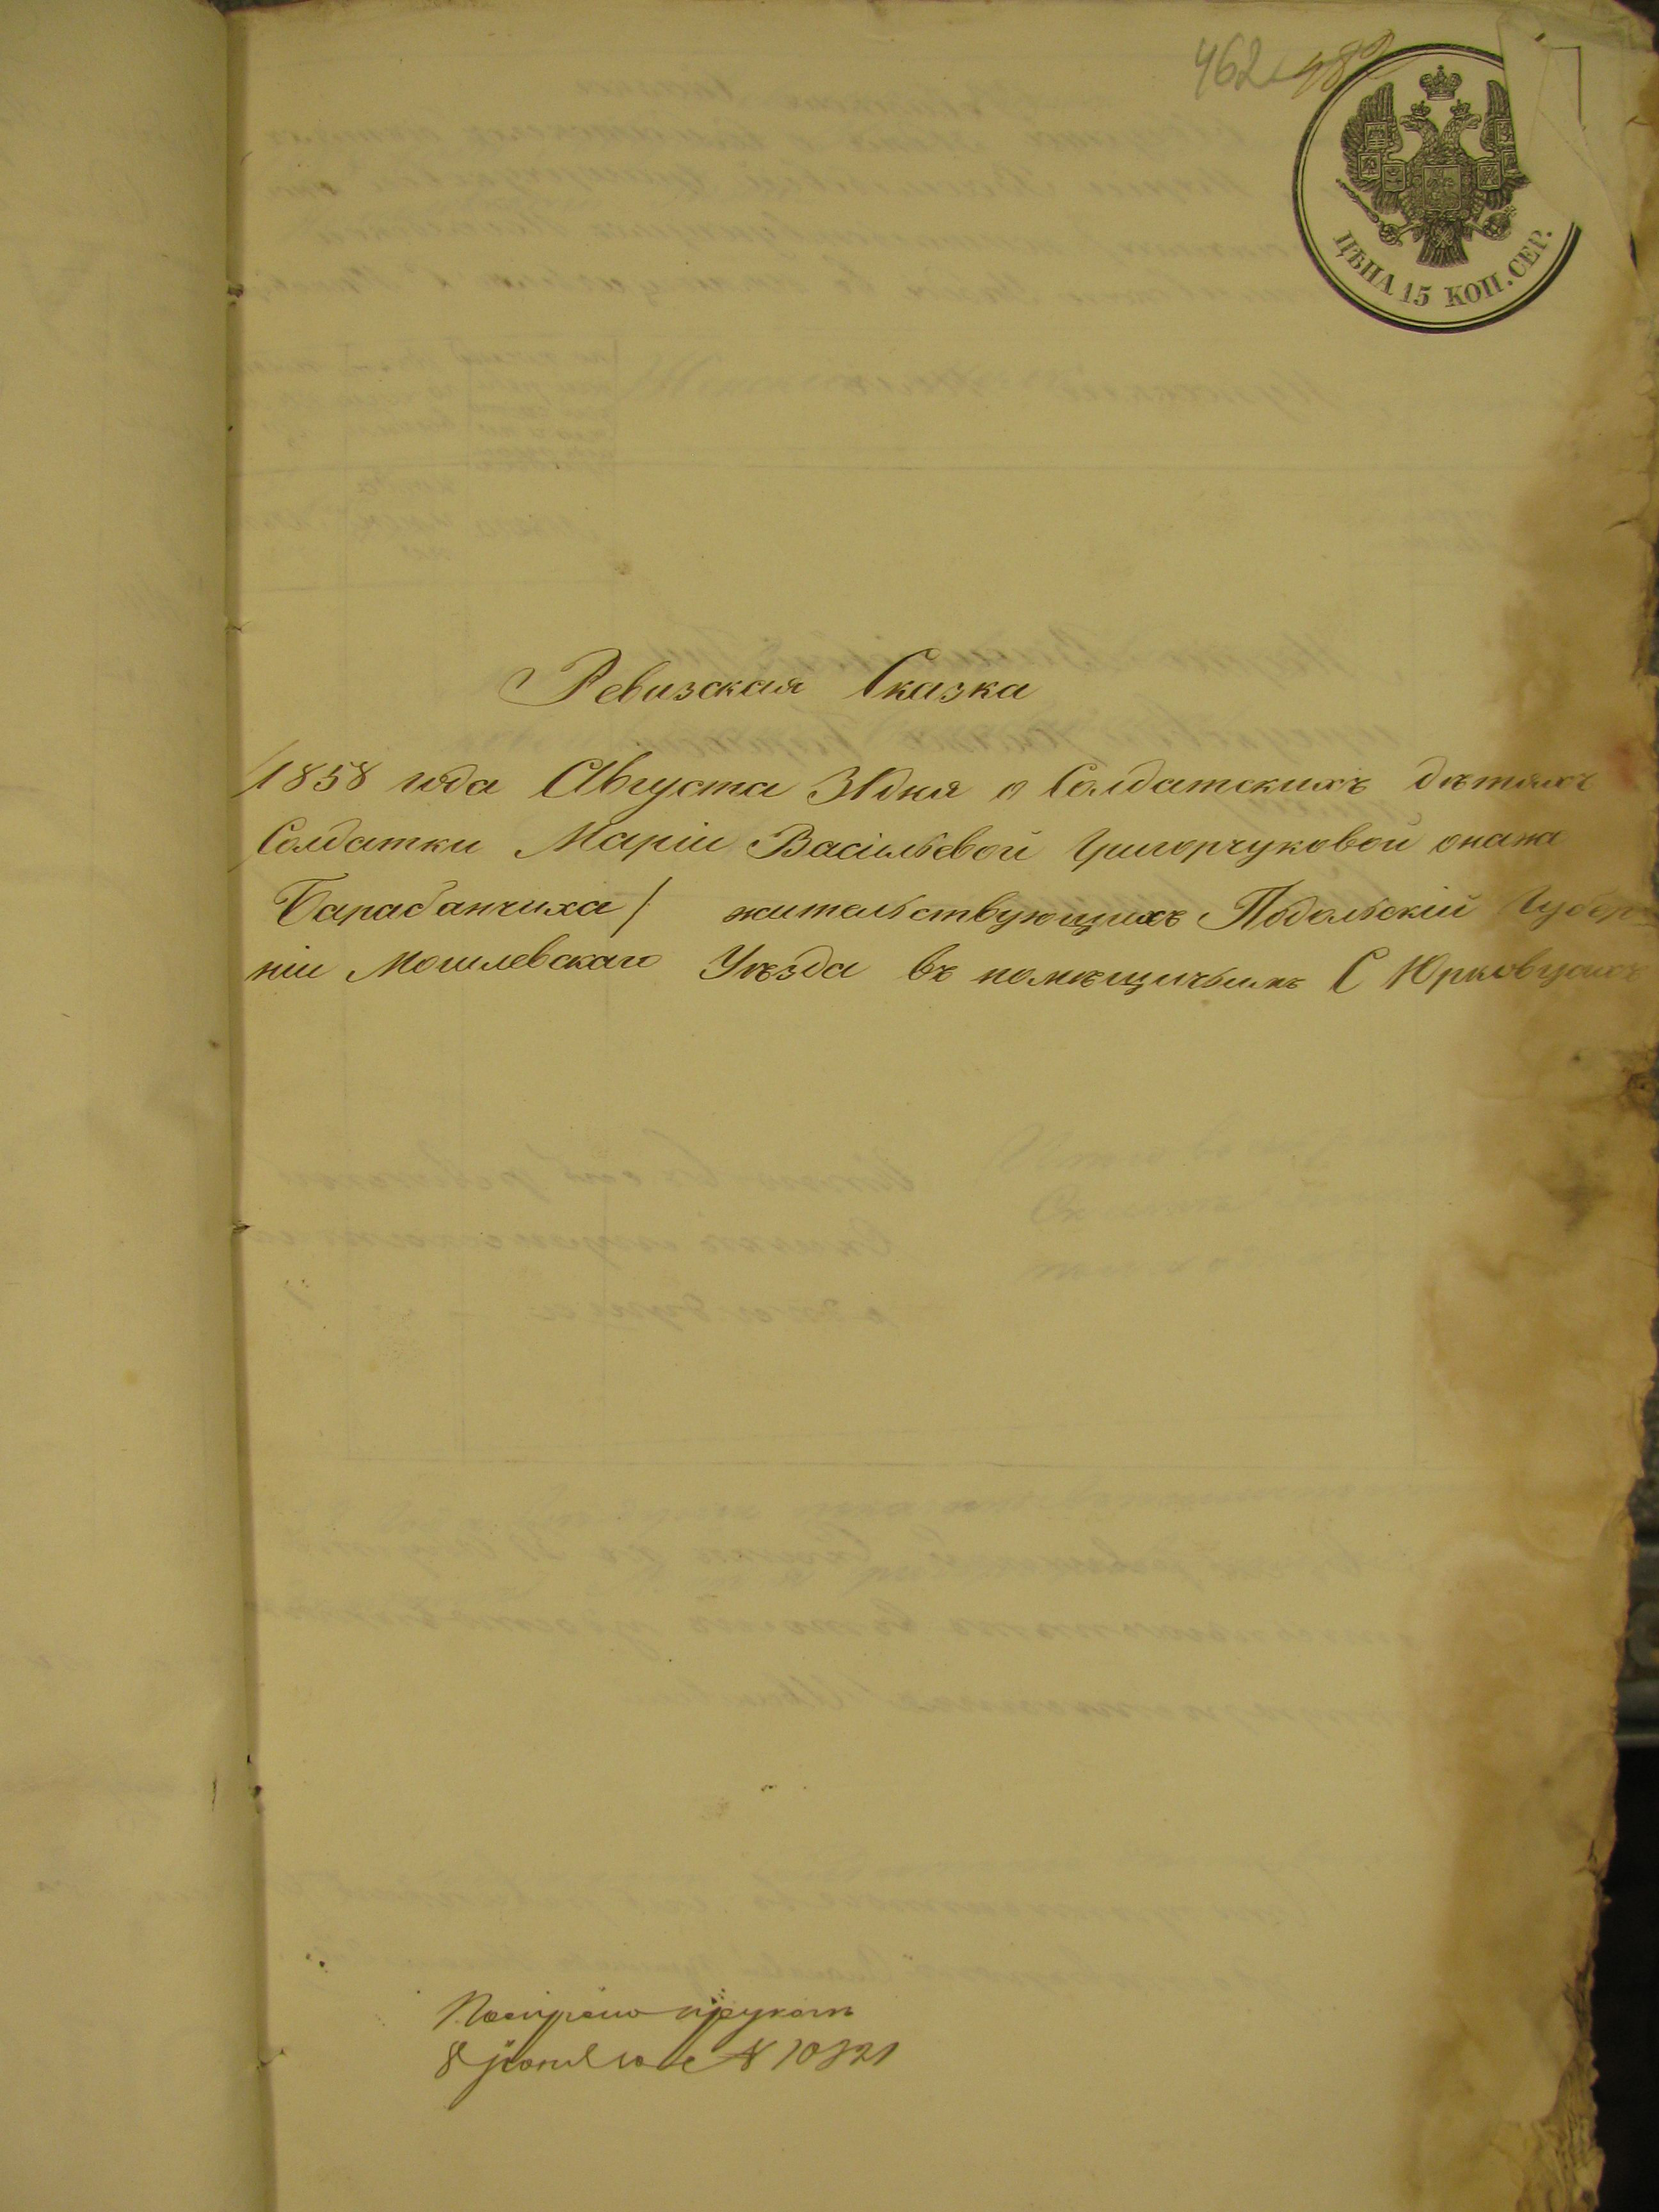 462
ЦѢНА 15 КОП. СЕР.
Ревизская Сказка
1858 года Августа 31 дня о Солдатскихъ дѣтяхъ
Солдатки Маріи Васильевой Григорчуковой онаже
Барабанчиха / жительствующихъ Подольскій Губер
ніи Могилевскаго Уѣзда въ помѣщичьимъ С Юрковцахъ
№ 10821